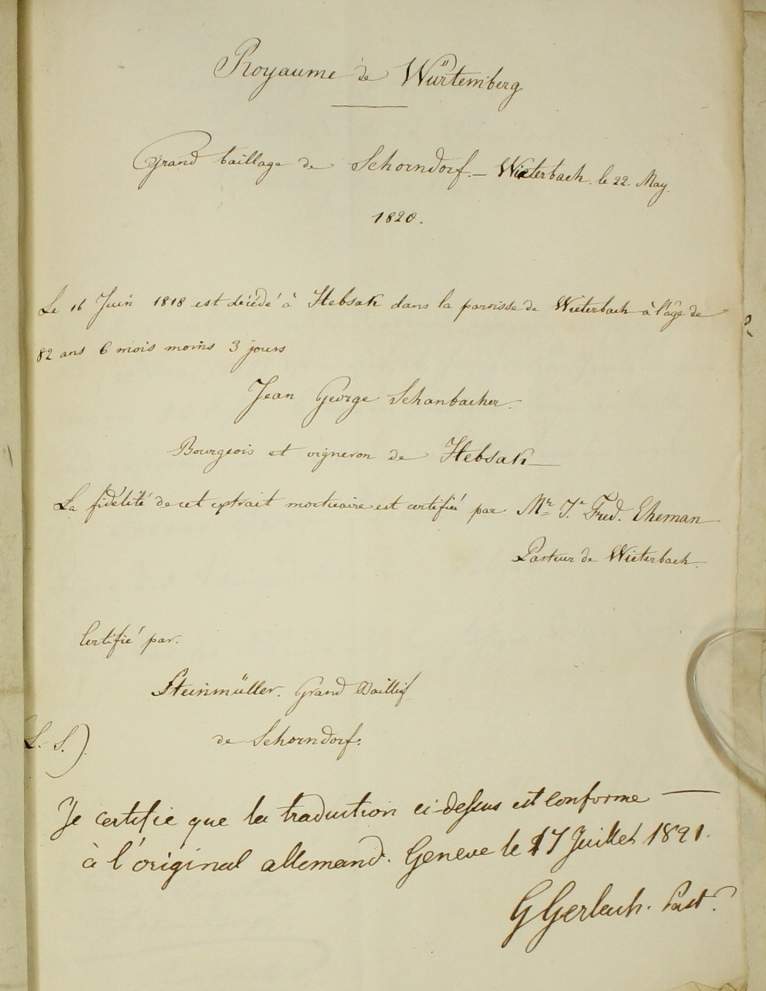 Royaume de Würtemberg
Grand baillage de Schorndorf. — Winterbach. le 22. May.
1820.
Le 16 Juin 1818 est décédé à Hebsak dans la paroisse de Winterbach à l'âge de
82 ans 6 mois moins 3 jours
Jean George Schanbacher.
Bourgeois et vigneron de Hebsak
La fidélité de cet extrait mortuaire est certifié par Mr. J. Fred. Eheman
Pasteur de Winterbach.
Certifié par.
Steinmüller. Grand Baillif
(L. S.) de Schorndorf.
Je certifie que la traduction ci-dessus est conforme
à l'original allemand. Geneve le 17 Juillet 1821.
G Gerlach. Past.